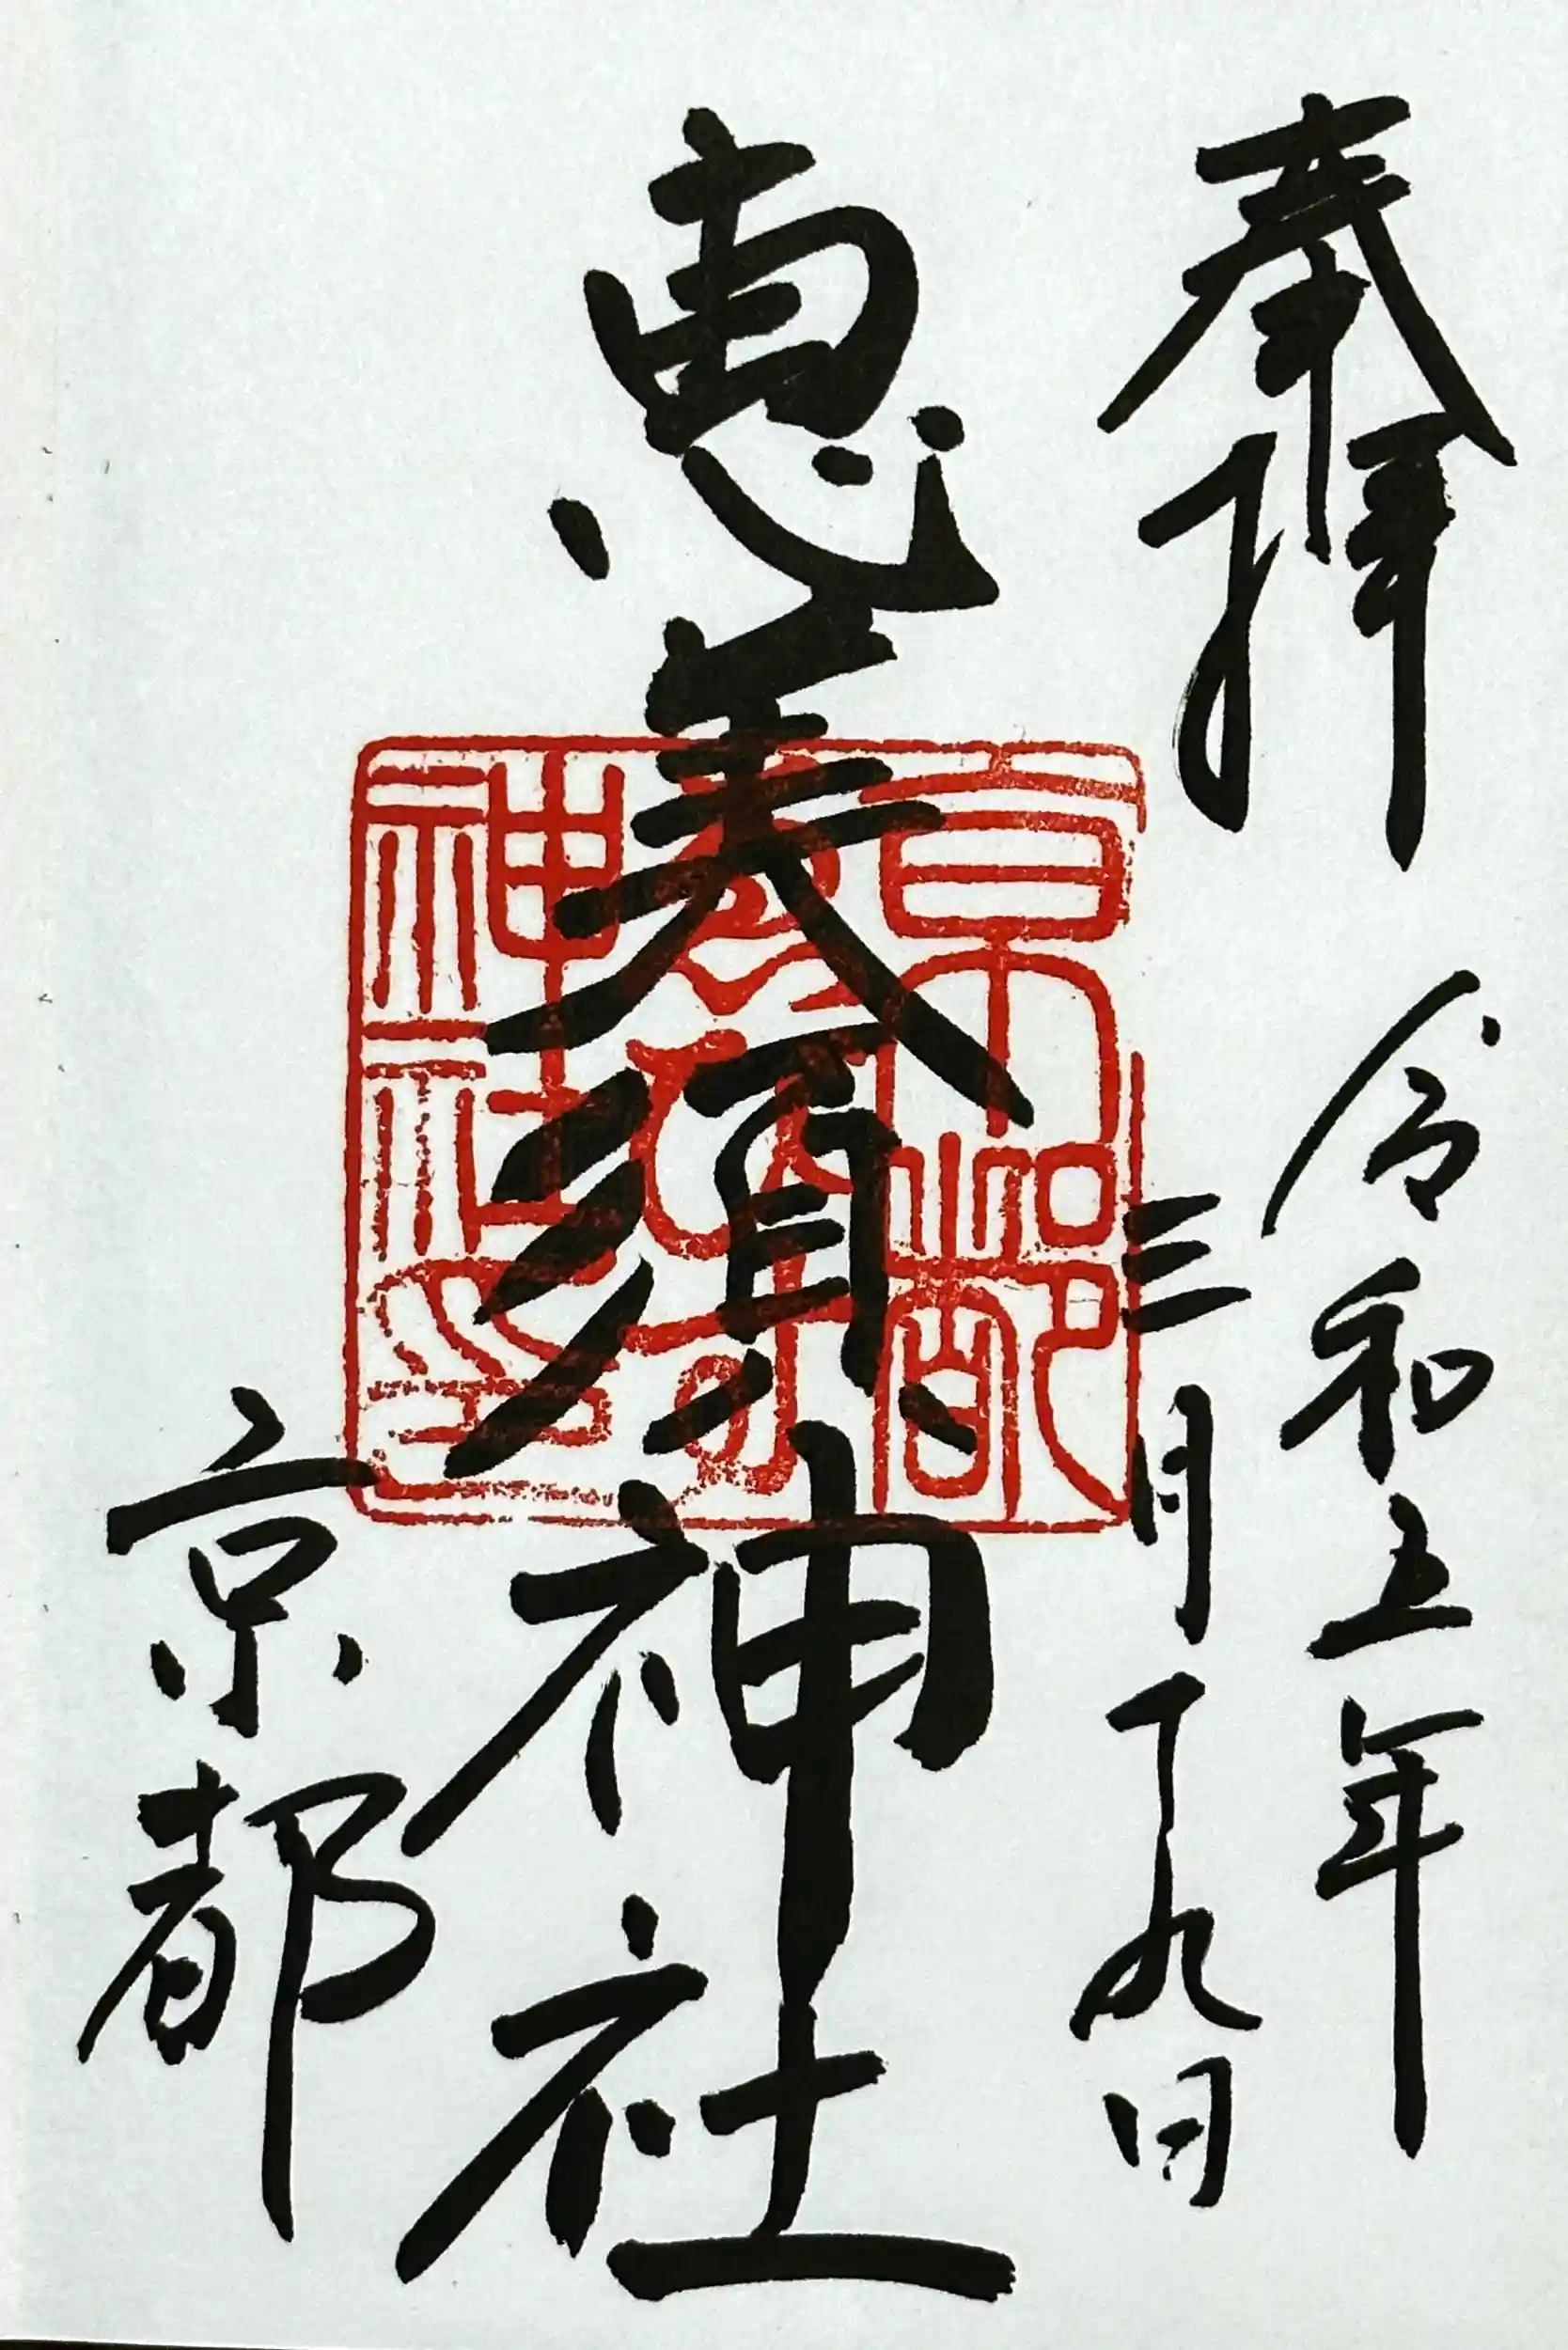 奉拝
令和五年
三月十九日
恵美須神社
京都
京都
ゑびす
神社印